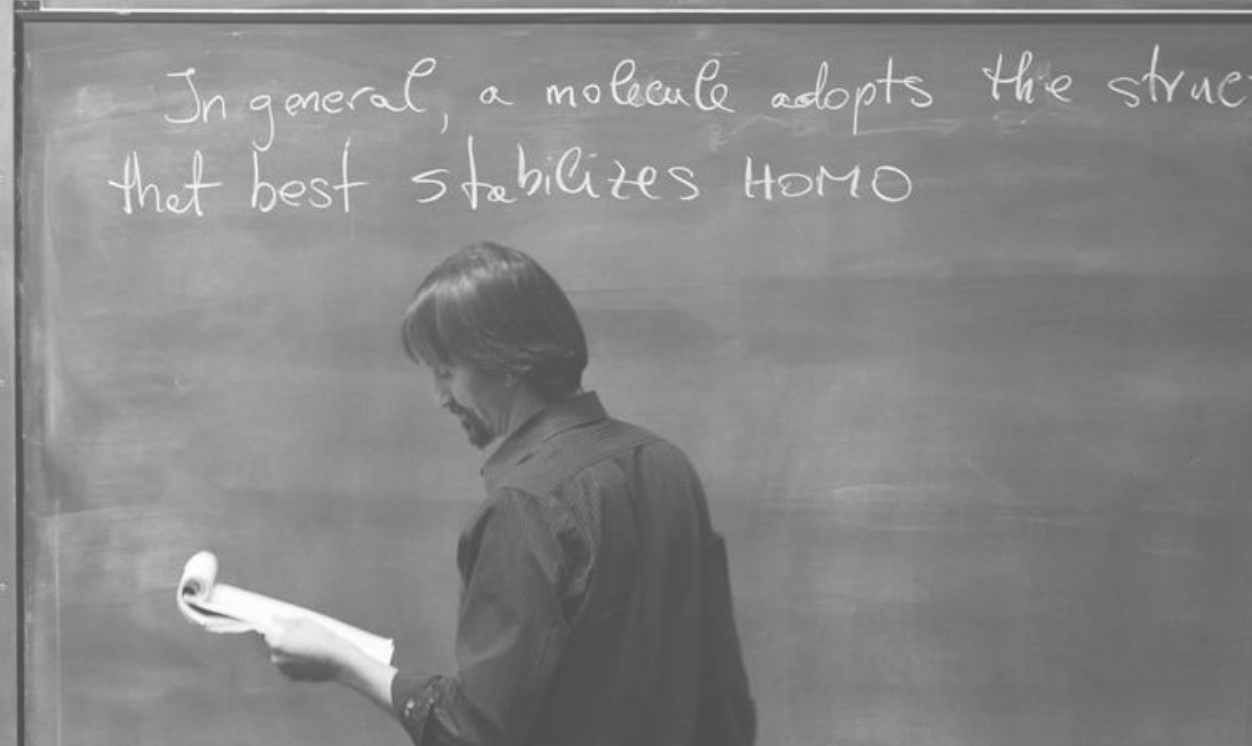 In general, a molecule adopts the struc
that best stabilizes HOMO